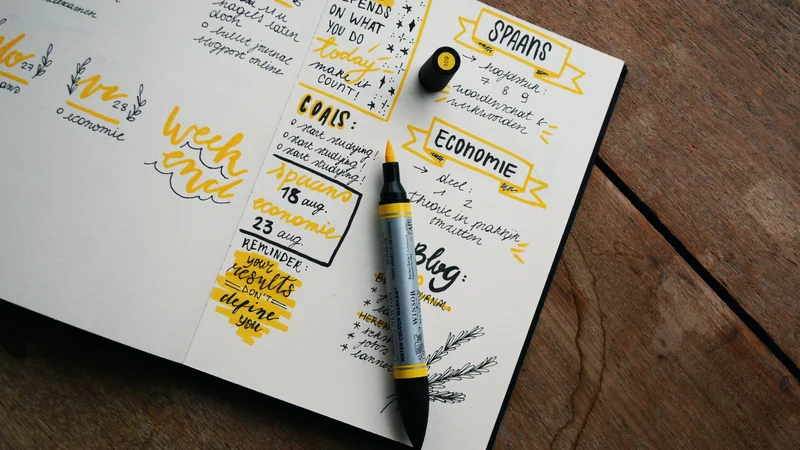 nagels laten
doen
o bullet journal
blogpost online
27
vr 28
o economie
Week
end
DEPENDS
ON WHAT
YOU DO
today
make it
COUNT!
GOALS:
o start studying!
o start studying!
o start studying!
spaans
18 aug.
economie
23 aug.
REMINDER:
your
results
DON'T
define
you
SPAANS
→ hoofdstuk:
7 8 9
woordenschat &
werkwoorden
ECONOMIE
→ deel:
1 2
theorie in praktijk
omzetten
Blog:
WATER COLOUR MARKER
WINSOR